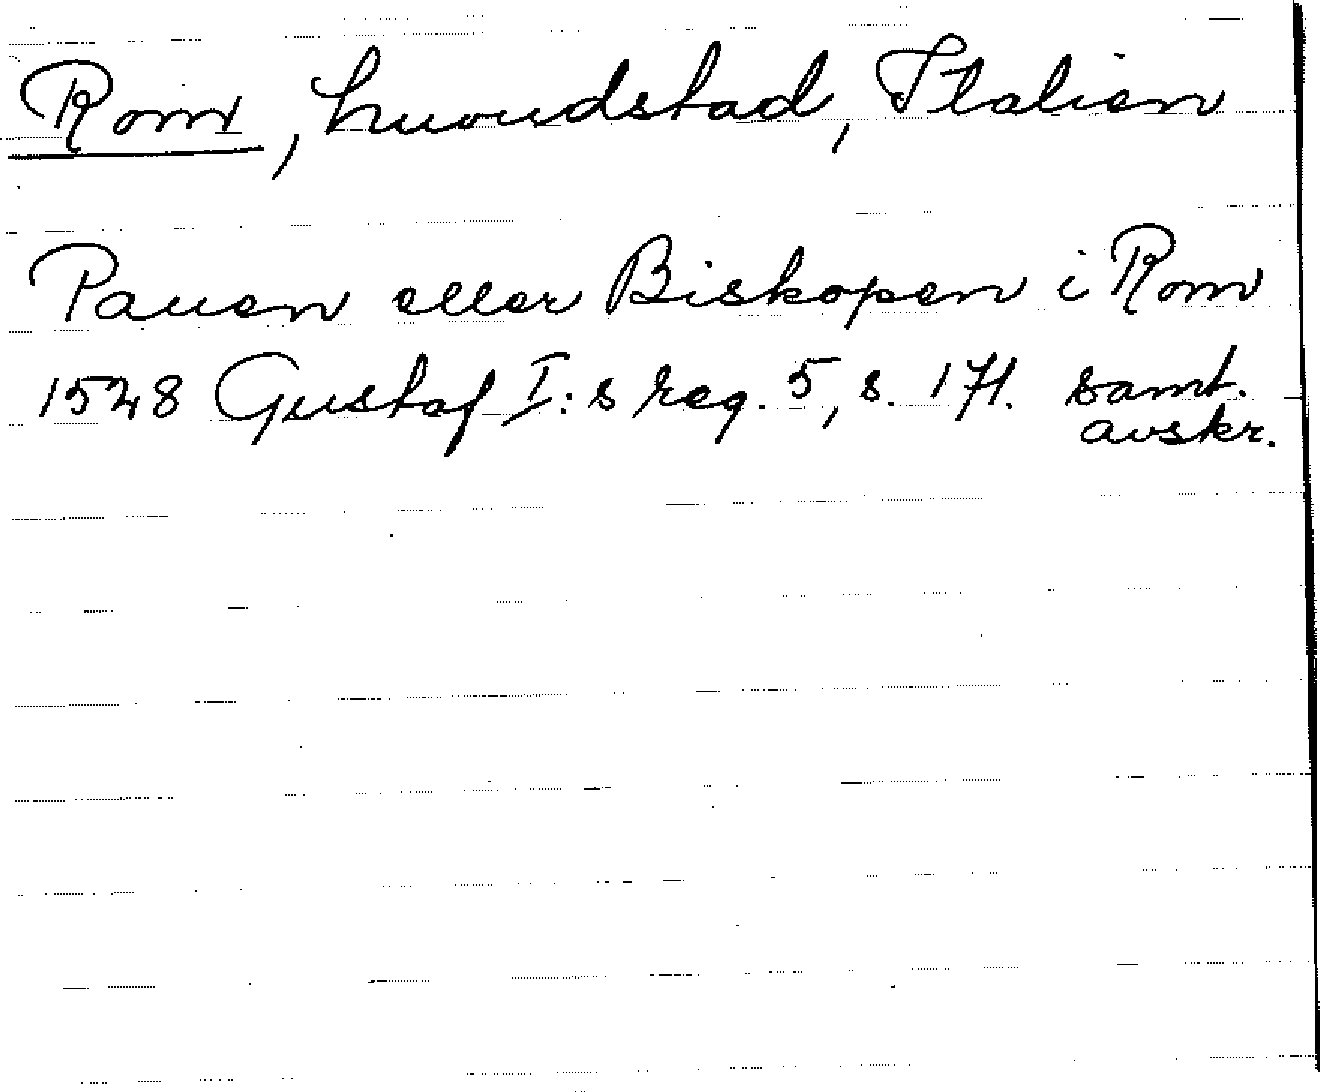 Rom, huvudstad, Italien
Pauen eller Biskopen i Rom
1528 Gustaf I:s reg. 5, s. 171. samt.
avskr.